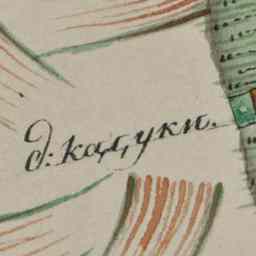 д: кацуки.